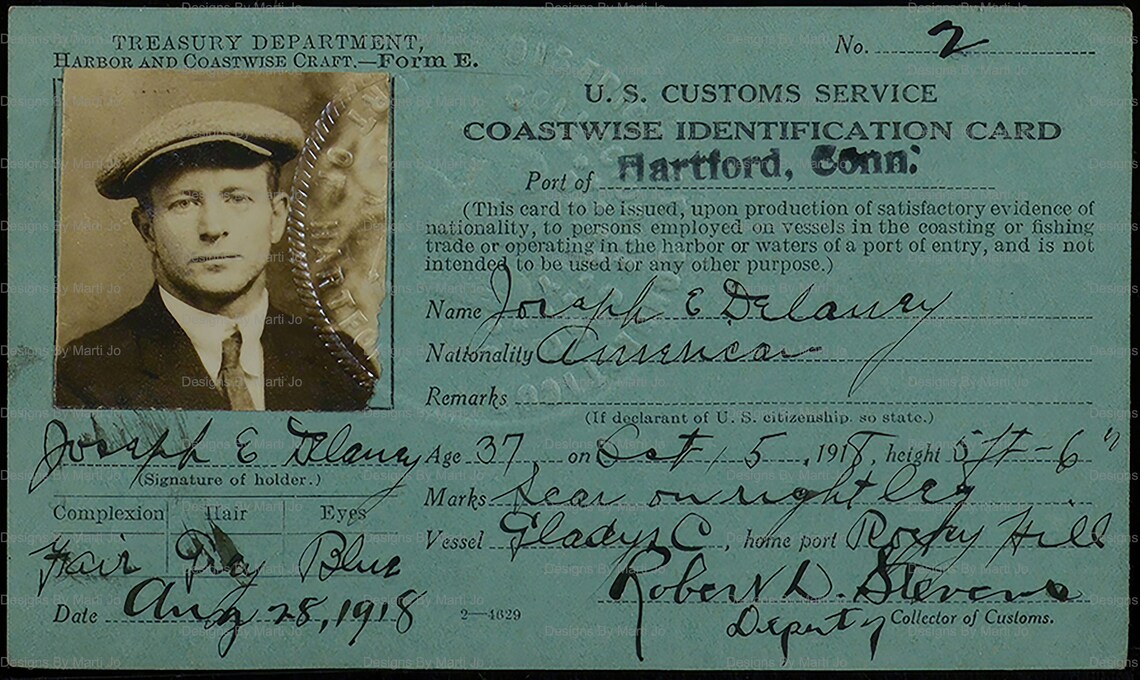 TREASURY DEPARTMENT,
HARBOR AND COASTWISE CRAFT.—FORM E.
No. 2
U. S. CUSTOMS SERVICE
COASTWISE IDENTIFICATION CARD
Port of Hartford, Conn.
(This card to be issued, upon production of satisfactory evidence of
nationality, to persons employed on vessels in the coasting or fishing
trade or operating in the harbor or waters of a port of entry, and is not
intended to be used for any other purpose.)
Name Joseph E Delaney
Nationality American
Remarks
(If declarant of U. S. citizenship, so state.)
Joseph E Delaney
(Signature of holder.)
Age 37, on Oct 15, 1918, height 5 ft - 6"
Marks Scar on right leg
Vessel Gladys C, home port Rocky Hill
Complexion Hair Eyes
Fair Gray Blue
Date Aug 28, 1918
2—4629
Robert D. Stevens
Deputy Collector of Customs.
Designs By Marti Jo